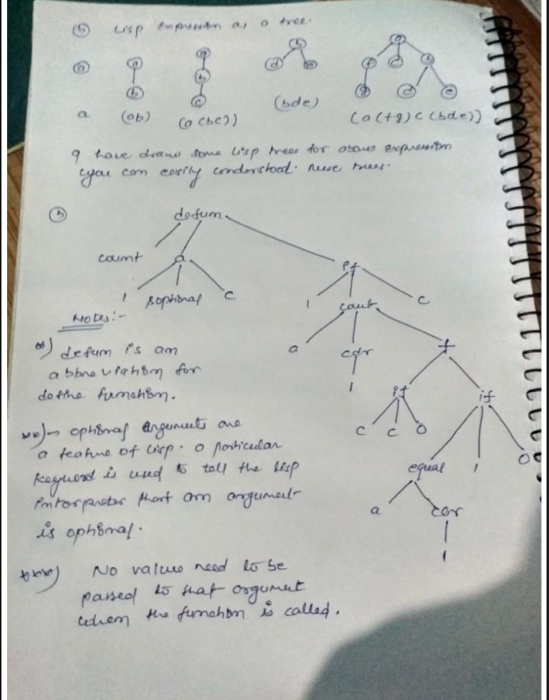 (5) Lisp Expression as a tree
(a) a a b a
b b d e f c b
b c g d e
a (ab) (a (bc)) (bde) (a (fg) c (bde))
I have drawn some Lisp trees for above expression
you can easily understood these trees.
(b) defun
count a if
l &optional c l count c
Notes:-
a cdr +
*) defun is an
l if if
abbreviation for
define function.
c c 0
**) → optional Arguments are
a feature of Lisp. a particular
equal 1 0
keyword is used to tell the Lisp
a car
interpreter that an argument
l
is optional.
***) No value need to be
passed to that argument
when the function is called.